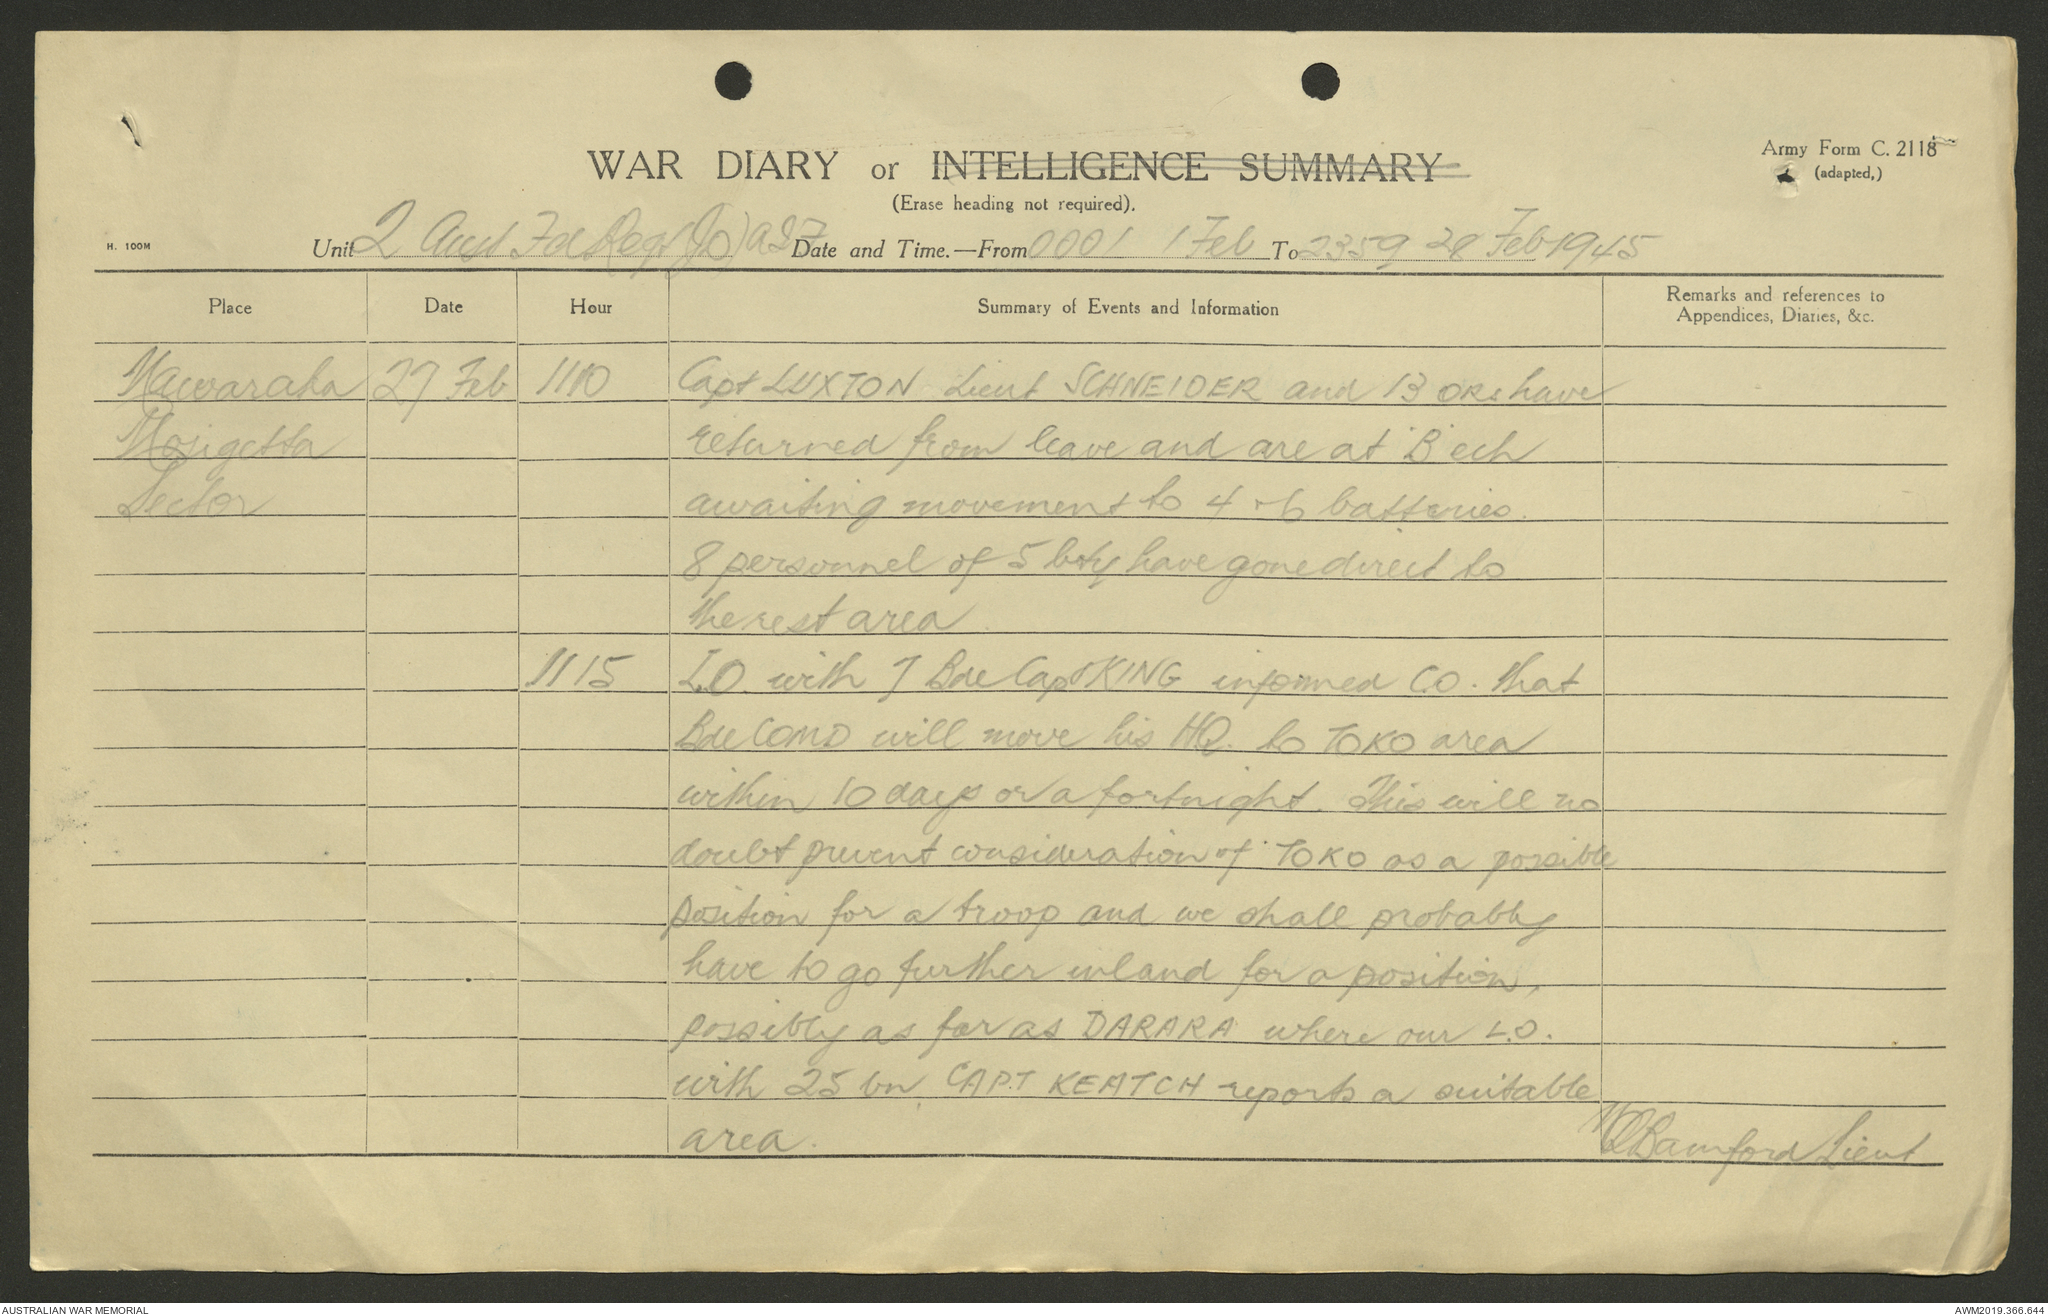 Army Form C. 2118
(adapted,)
WAR DIARY or INTELLIGENCE SUMMARY
(Erase heading not required).
H. 100M
Unit 2 Aust Fd Regt (Jo) AIF Date and Time.—From 0001 1 Feb To 2359 28 Feb 1945
Place Date Hour Summary of Events and Information Remarks and references to
Appendices, Diaries, &c.
Mawaraka 27 Feb 1110 Capt LUXTON Lieut SCHNEIDER and 13 ORs have
Mosigetta returned from leave and are at 'B' ech
Sector awaiting movement to 4 & 6 batteries.
8 personnel of 5 bty have gone direct to
the rest area.
1115 L.O. with 7 Bde Capt KING informed C.O. that
Bde COMD will move his HQ. to TOKO area
within 10 days or a fortnight. This will no
doubt prevent consideration of TOKO as a possible
position for a troop and we shall probably
have to go further inland for a position,
possibly as far as DARARA where our L.O.
with 25 bn CAPT KEATCH reports a suitable
area.
Bamford Lieut
AUSTRALIAN WAR MEMORIAL
AWM2019.366.644